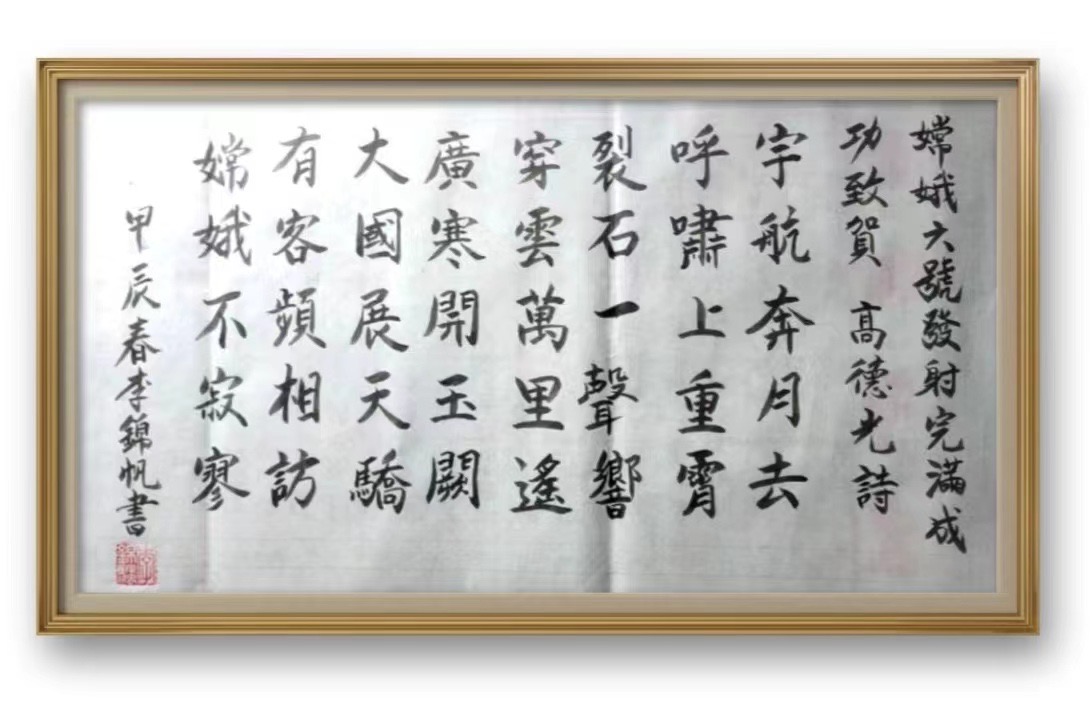 嫦娥六號發射完滿成
功致賀 高德光詩
宇航奔月去
呼嘯上重霄
裂石一聲響
穿雲萬里遙
廣寒開玉闕
大國展天驕
有客頻相訪
嫦娥不寂寥
甲辰春李錦帆書